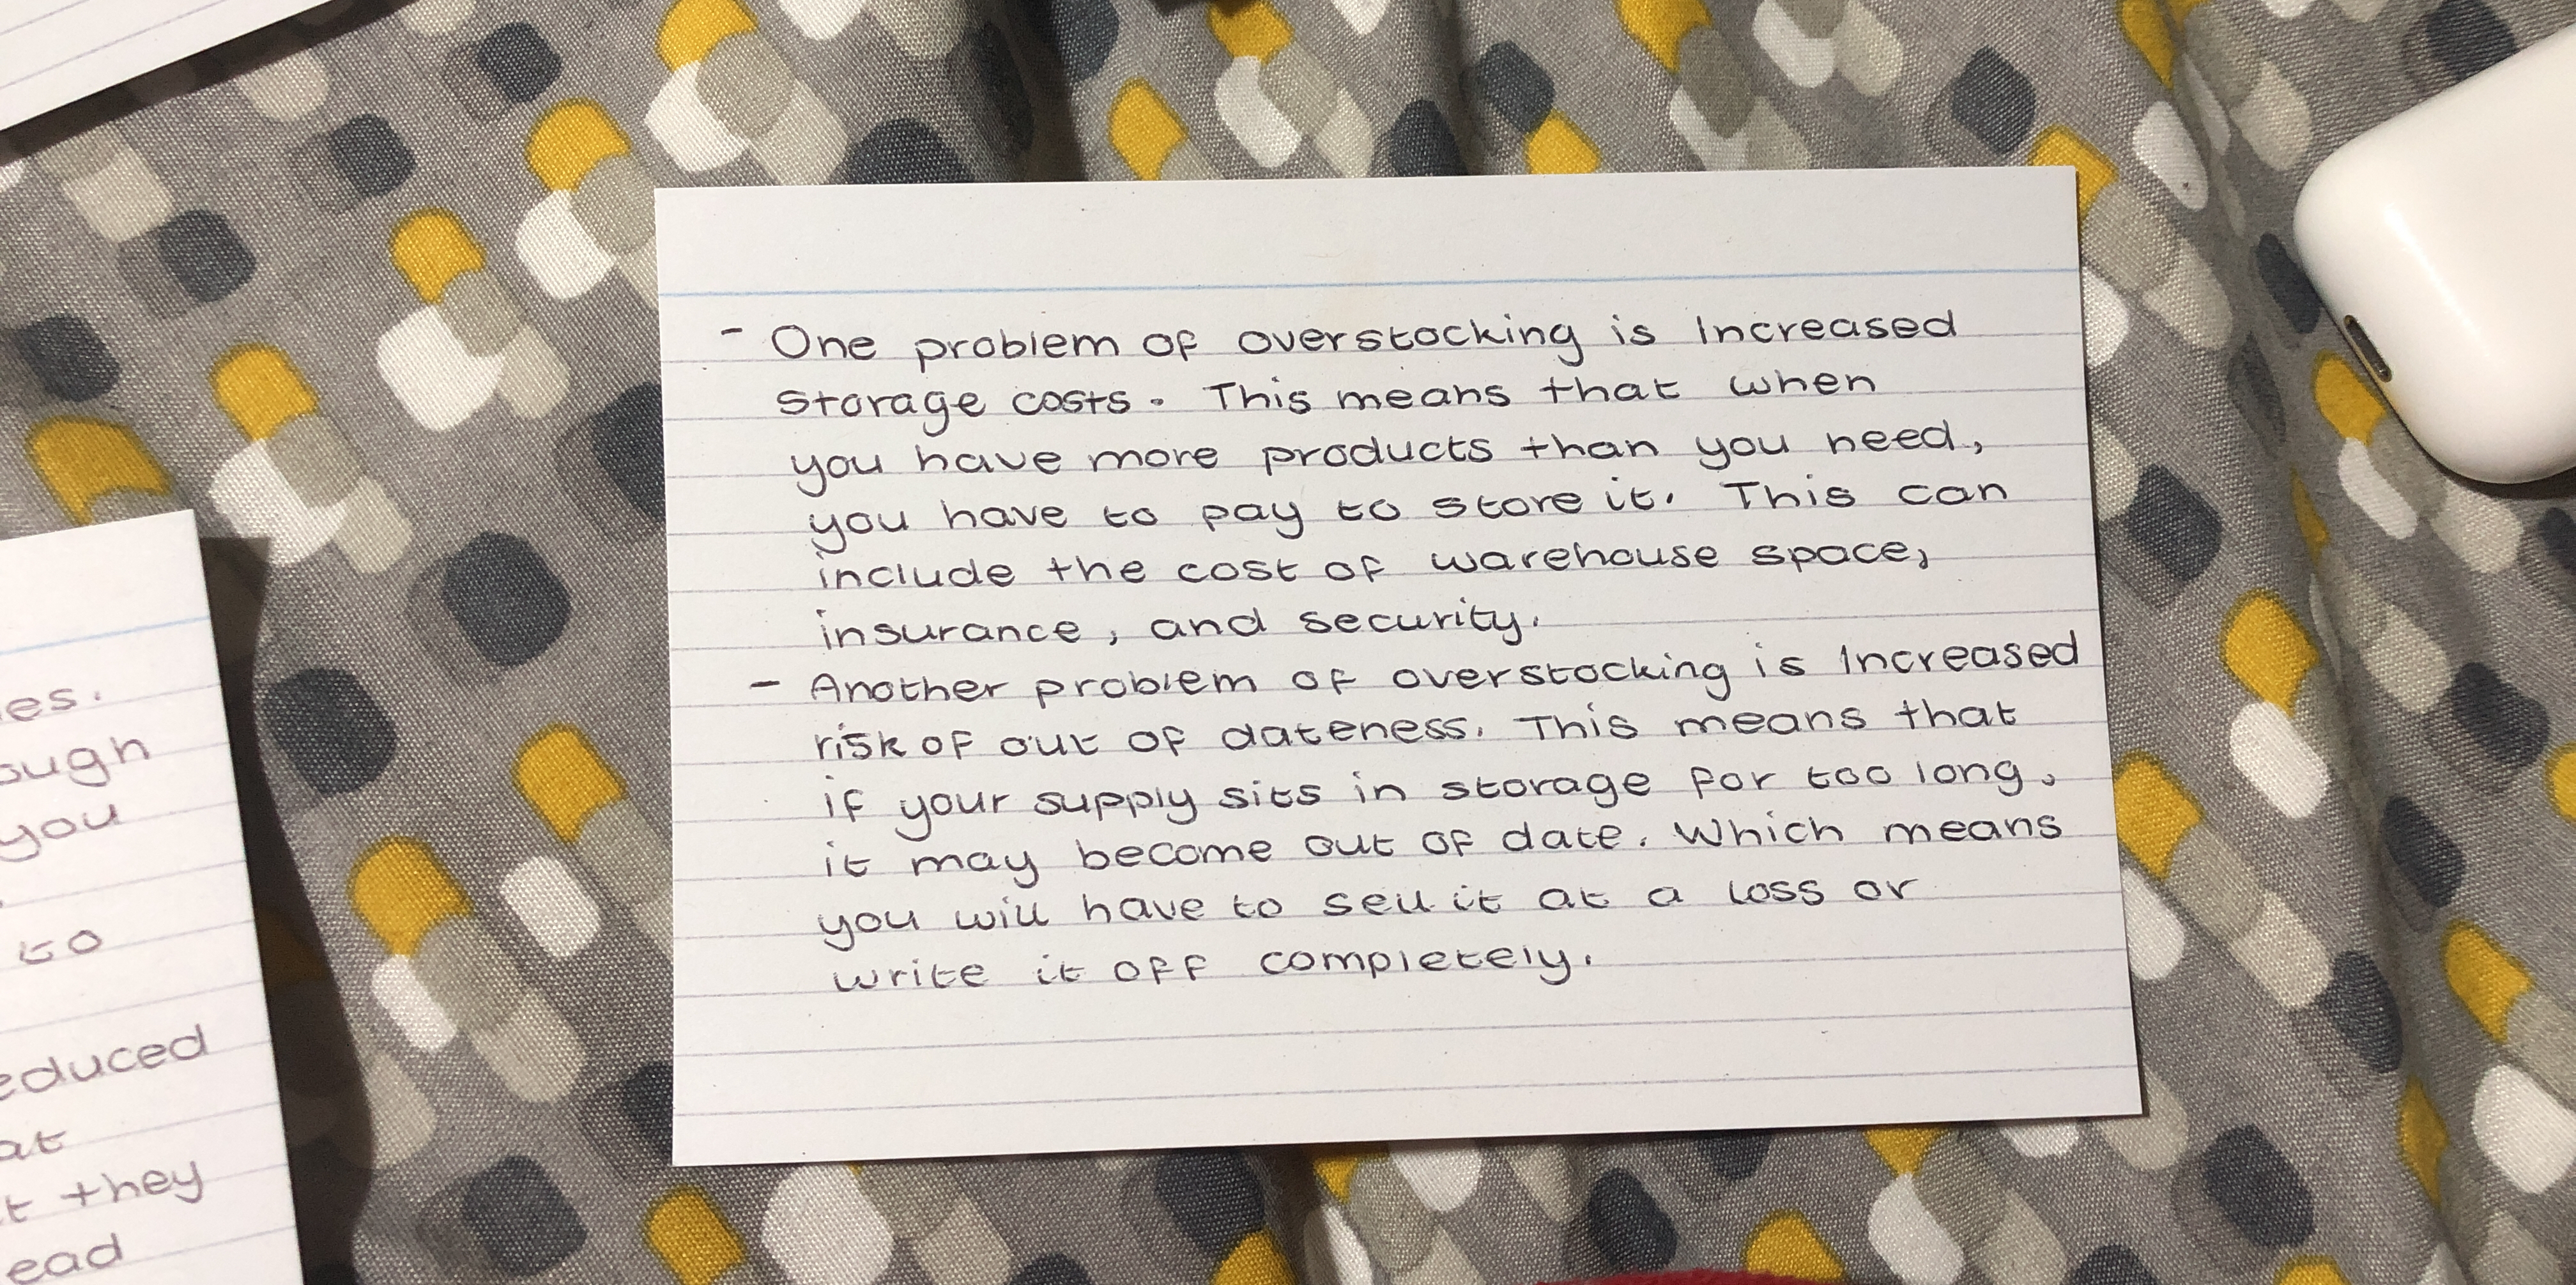 - One problem of overstocking is Increased
storage costs. This means that when
you have more products than you need,
you have to pay to store it. This can
include the cost of warehouse space,
insurance, and security.
- Another problem of overstocking is Increased
risk of out of dateness. This means that
if your supply sits in storage for too long,
it may become out of date. Which means
you will have to sell it at a loss or
write it off completely.
es.
ough
you
to
educed
at
t they
ead